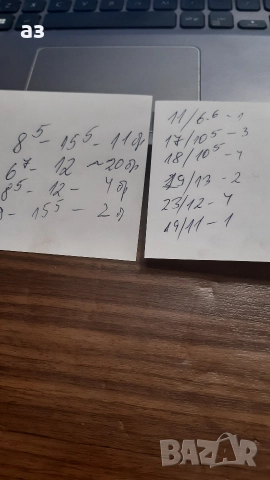 аз
8⁵ - 15⁵ - 11 бр
6⁷ - 12 ~ 20 бр
8⁵ - 12 - 4 бр
- 15⁵ - 2
11/6-6 - 1
17/10⁵ - 3
18/10⁵ - 4
29/13 - 2
23/12 - 4
19/11 - 1
BAZAR